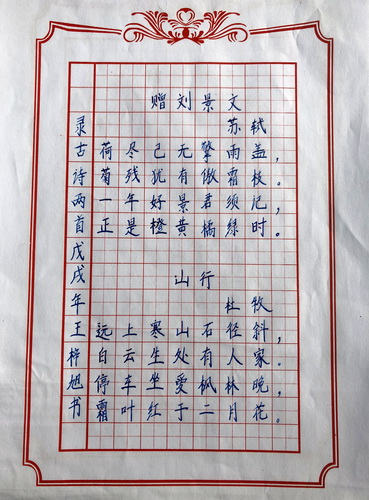 赠刘景文
苏轼
荷尽已无擎雨盖，
菊残犹有傲霜枝。
一年好景君须记，
正是橙黄橘绿时。
山行
杜牧
远上寒山石径斜，
白云生处有人家。
停车坐爱枫林晚，
霜叶红于二月花。
录古诗两首戊戌年王梓旭书